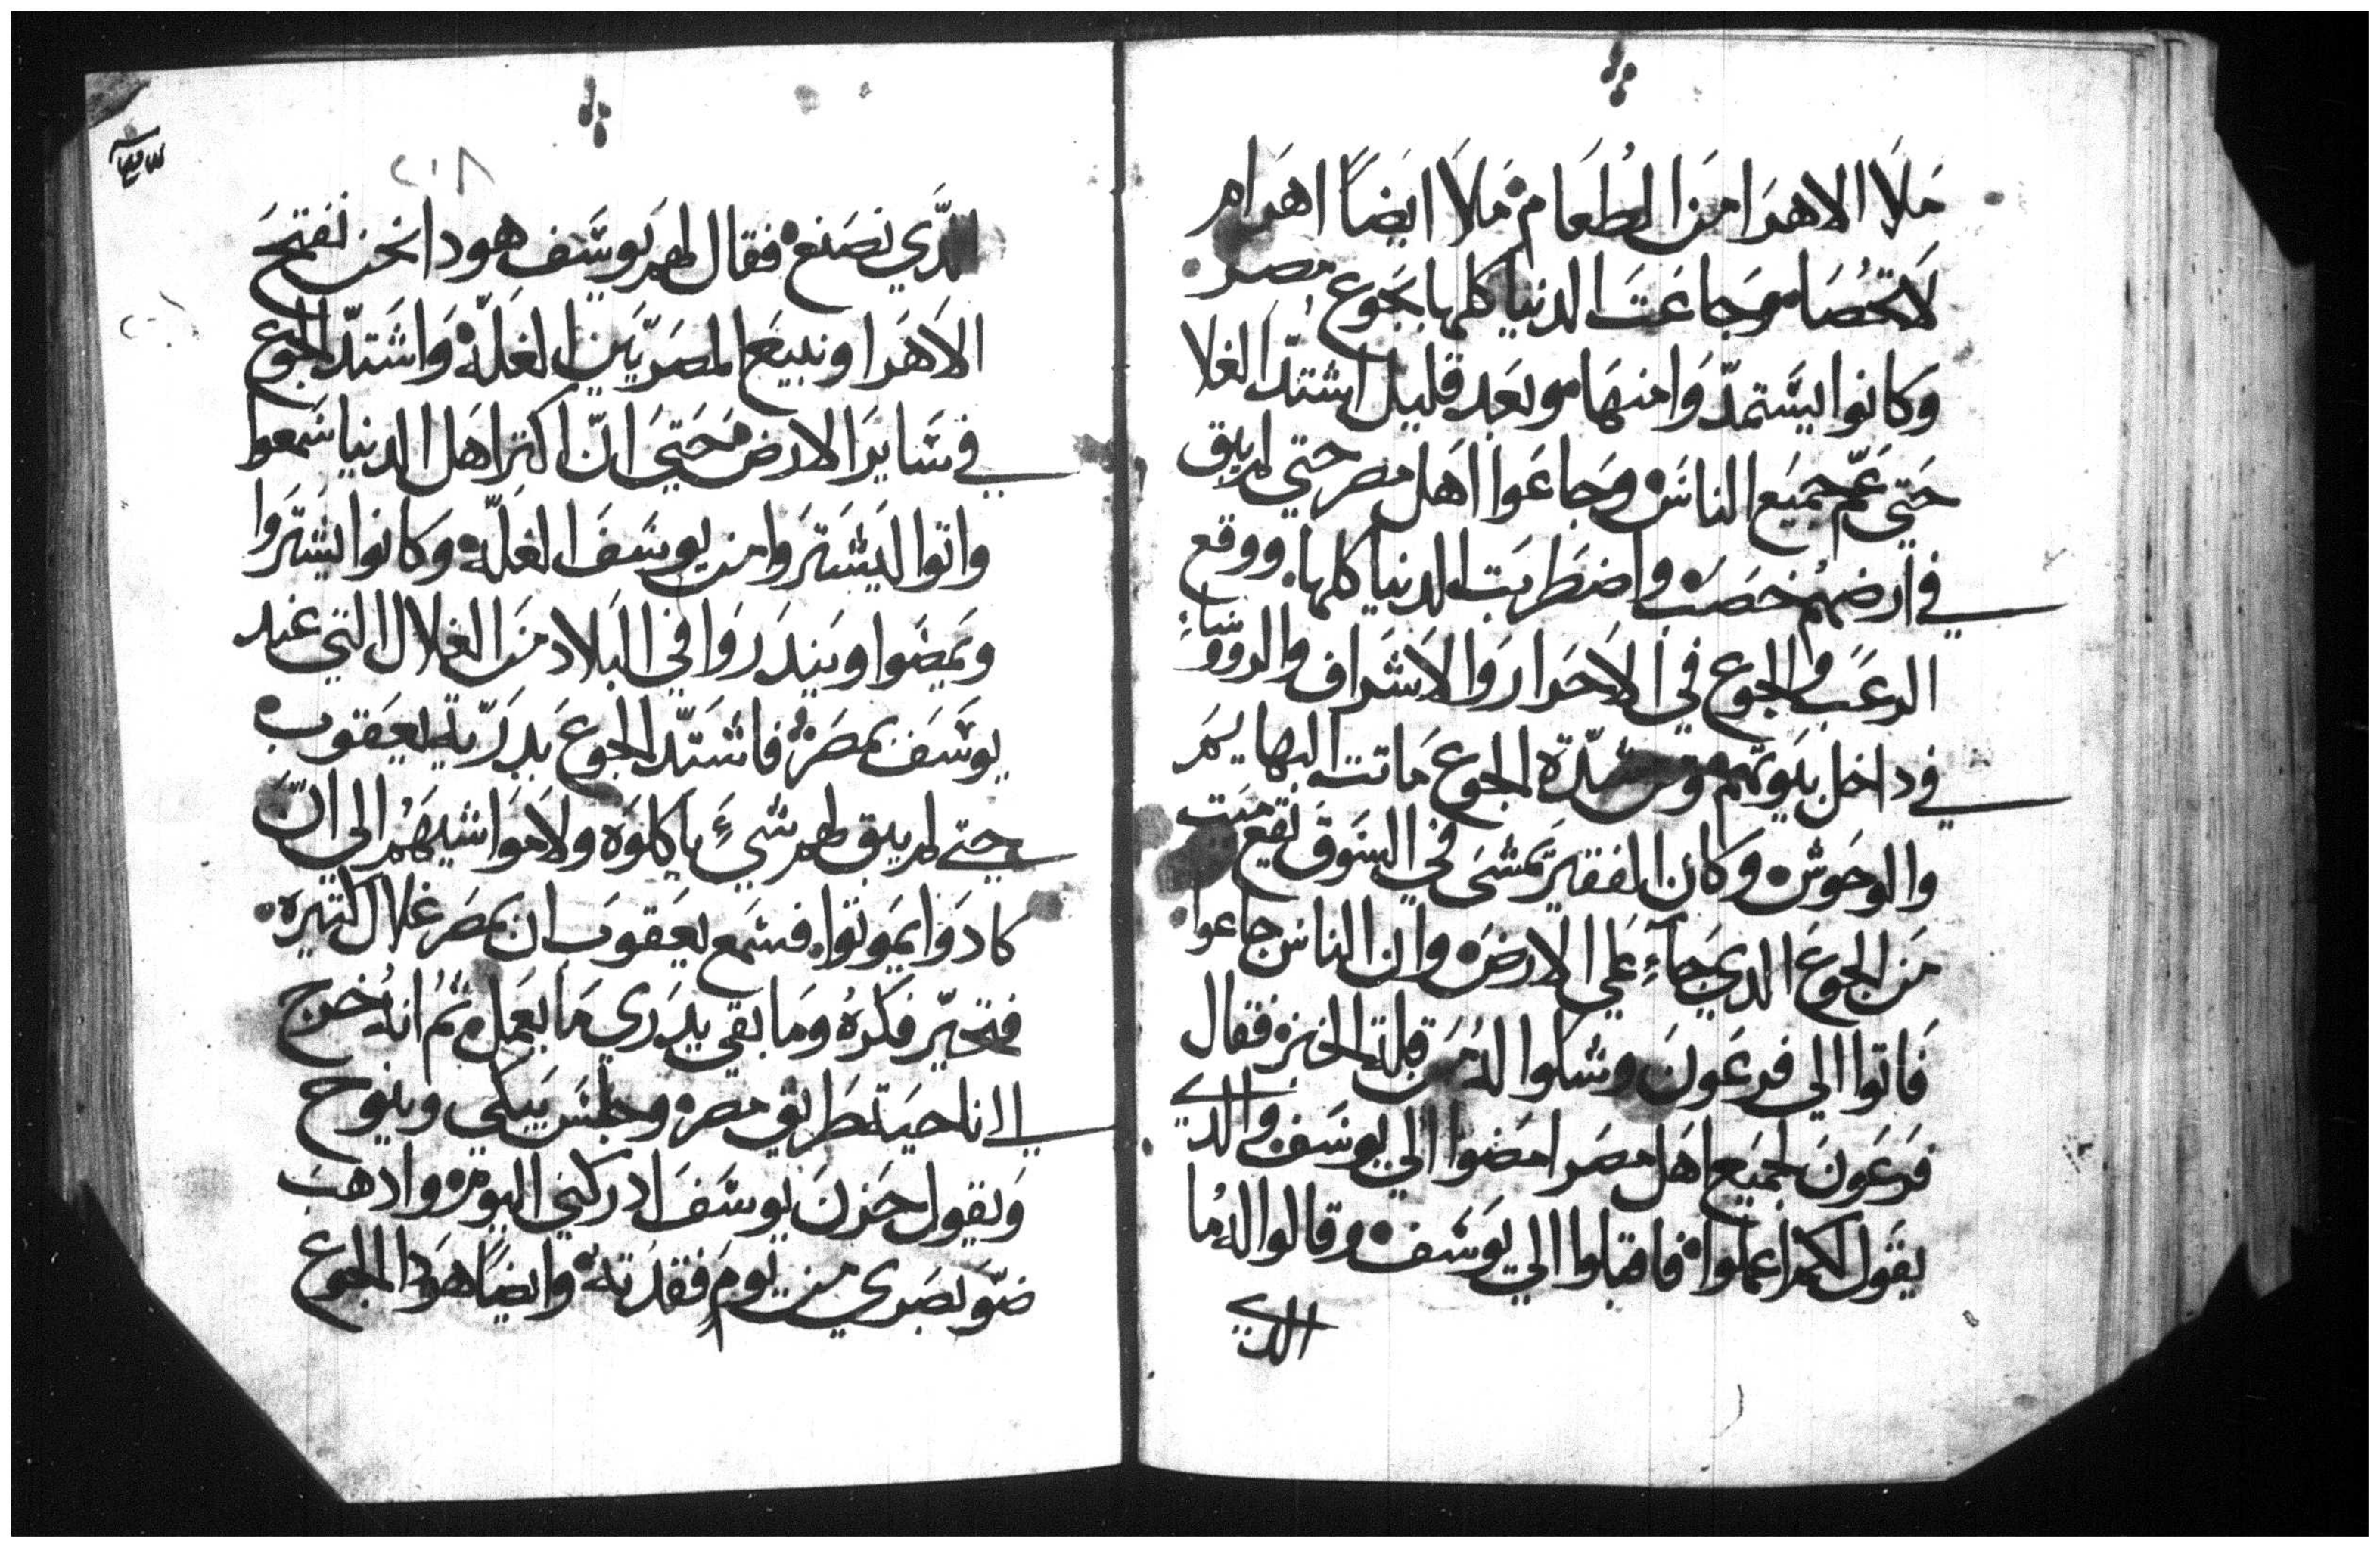 مَلَا الاهرَا منَ الطُعَام مَلَا ايضَاً اهَرام
لاتحُصَا وجَاعَتَ الدنيا كلها بجَوع مصر
وَكانوا يسَتمدّوَا منهَا وبعَد قليل اشتدّ الغلا
حَتي عَمّ جميَع الناسَ وجَاعَوا اهَل مصر حتي لم يبق
في ارضهُم خصَبَ واضطَربَت الدنيا كلها ووقع
الرعَب والجوع في الاحَرار وَالاشَراف والروَسَاءِ
في داخل بيَوتهم ومن شدّة الجوع مَاتت البهايَم
والوحَوش وكان الفقيرَ يمشَي في السَوقَ يقَع ميَت
مَن الجَوعَ الدي جَاءَ عَلي الارضَ وان الناسَ جاعوا
فَاتوا الي فرعَونَ وشكوا لهُ مَن قلة الخبز فقال
فرَعَونَ لجميَع اهَل مصَر امضَوا الي يوسَف والدي
يقَول لكمَ اعملوا فاقبلوا الي يوَسَف وقالوا لهُ مَا
الدي
٢٠٨
الدّي نصَنع فقال لهم يَوسَف هودا نحن نَفتحَ
الاهَرَا ونبيعَ المصَريّيَن الغلَة وَاشَتدّ الجوَع
في سَايرَ الارض حَتيَ انّ اكثر اهَل الدنيا سَمعوا
واتوا ليَشتَرَوا من يوسَفَ الغلَة وَكانوا يشَترَوا
ويَمضَوا ويَندَروَا في البَلاد منَ الغلال التي عَند
يوسَفَ بمصَر فاشتَدّ الجوعَ بدرَيّة يعَقوب
حتي لم يبق لهم شيءَ ياكلوَه ولا موَاشيهَم الي انّ
كادوَا يمَوتوا فسَمع يعَقوبَ ان بمصَر غَلال كتيره
فتحيّر فكَرهُ ومَا بقي يدَري مَا يعَمل ثمُ انهُ خرج
الي ناحيَة طَريق مصر وجلسَ يَبكي وينوح
وَيقول حَزنَ يوسَفَ ادركني اليومَ وادهبَ
ضوَ بصَري من يومَ فقدَته وايضاً هوَدا الجوع